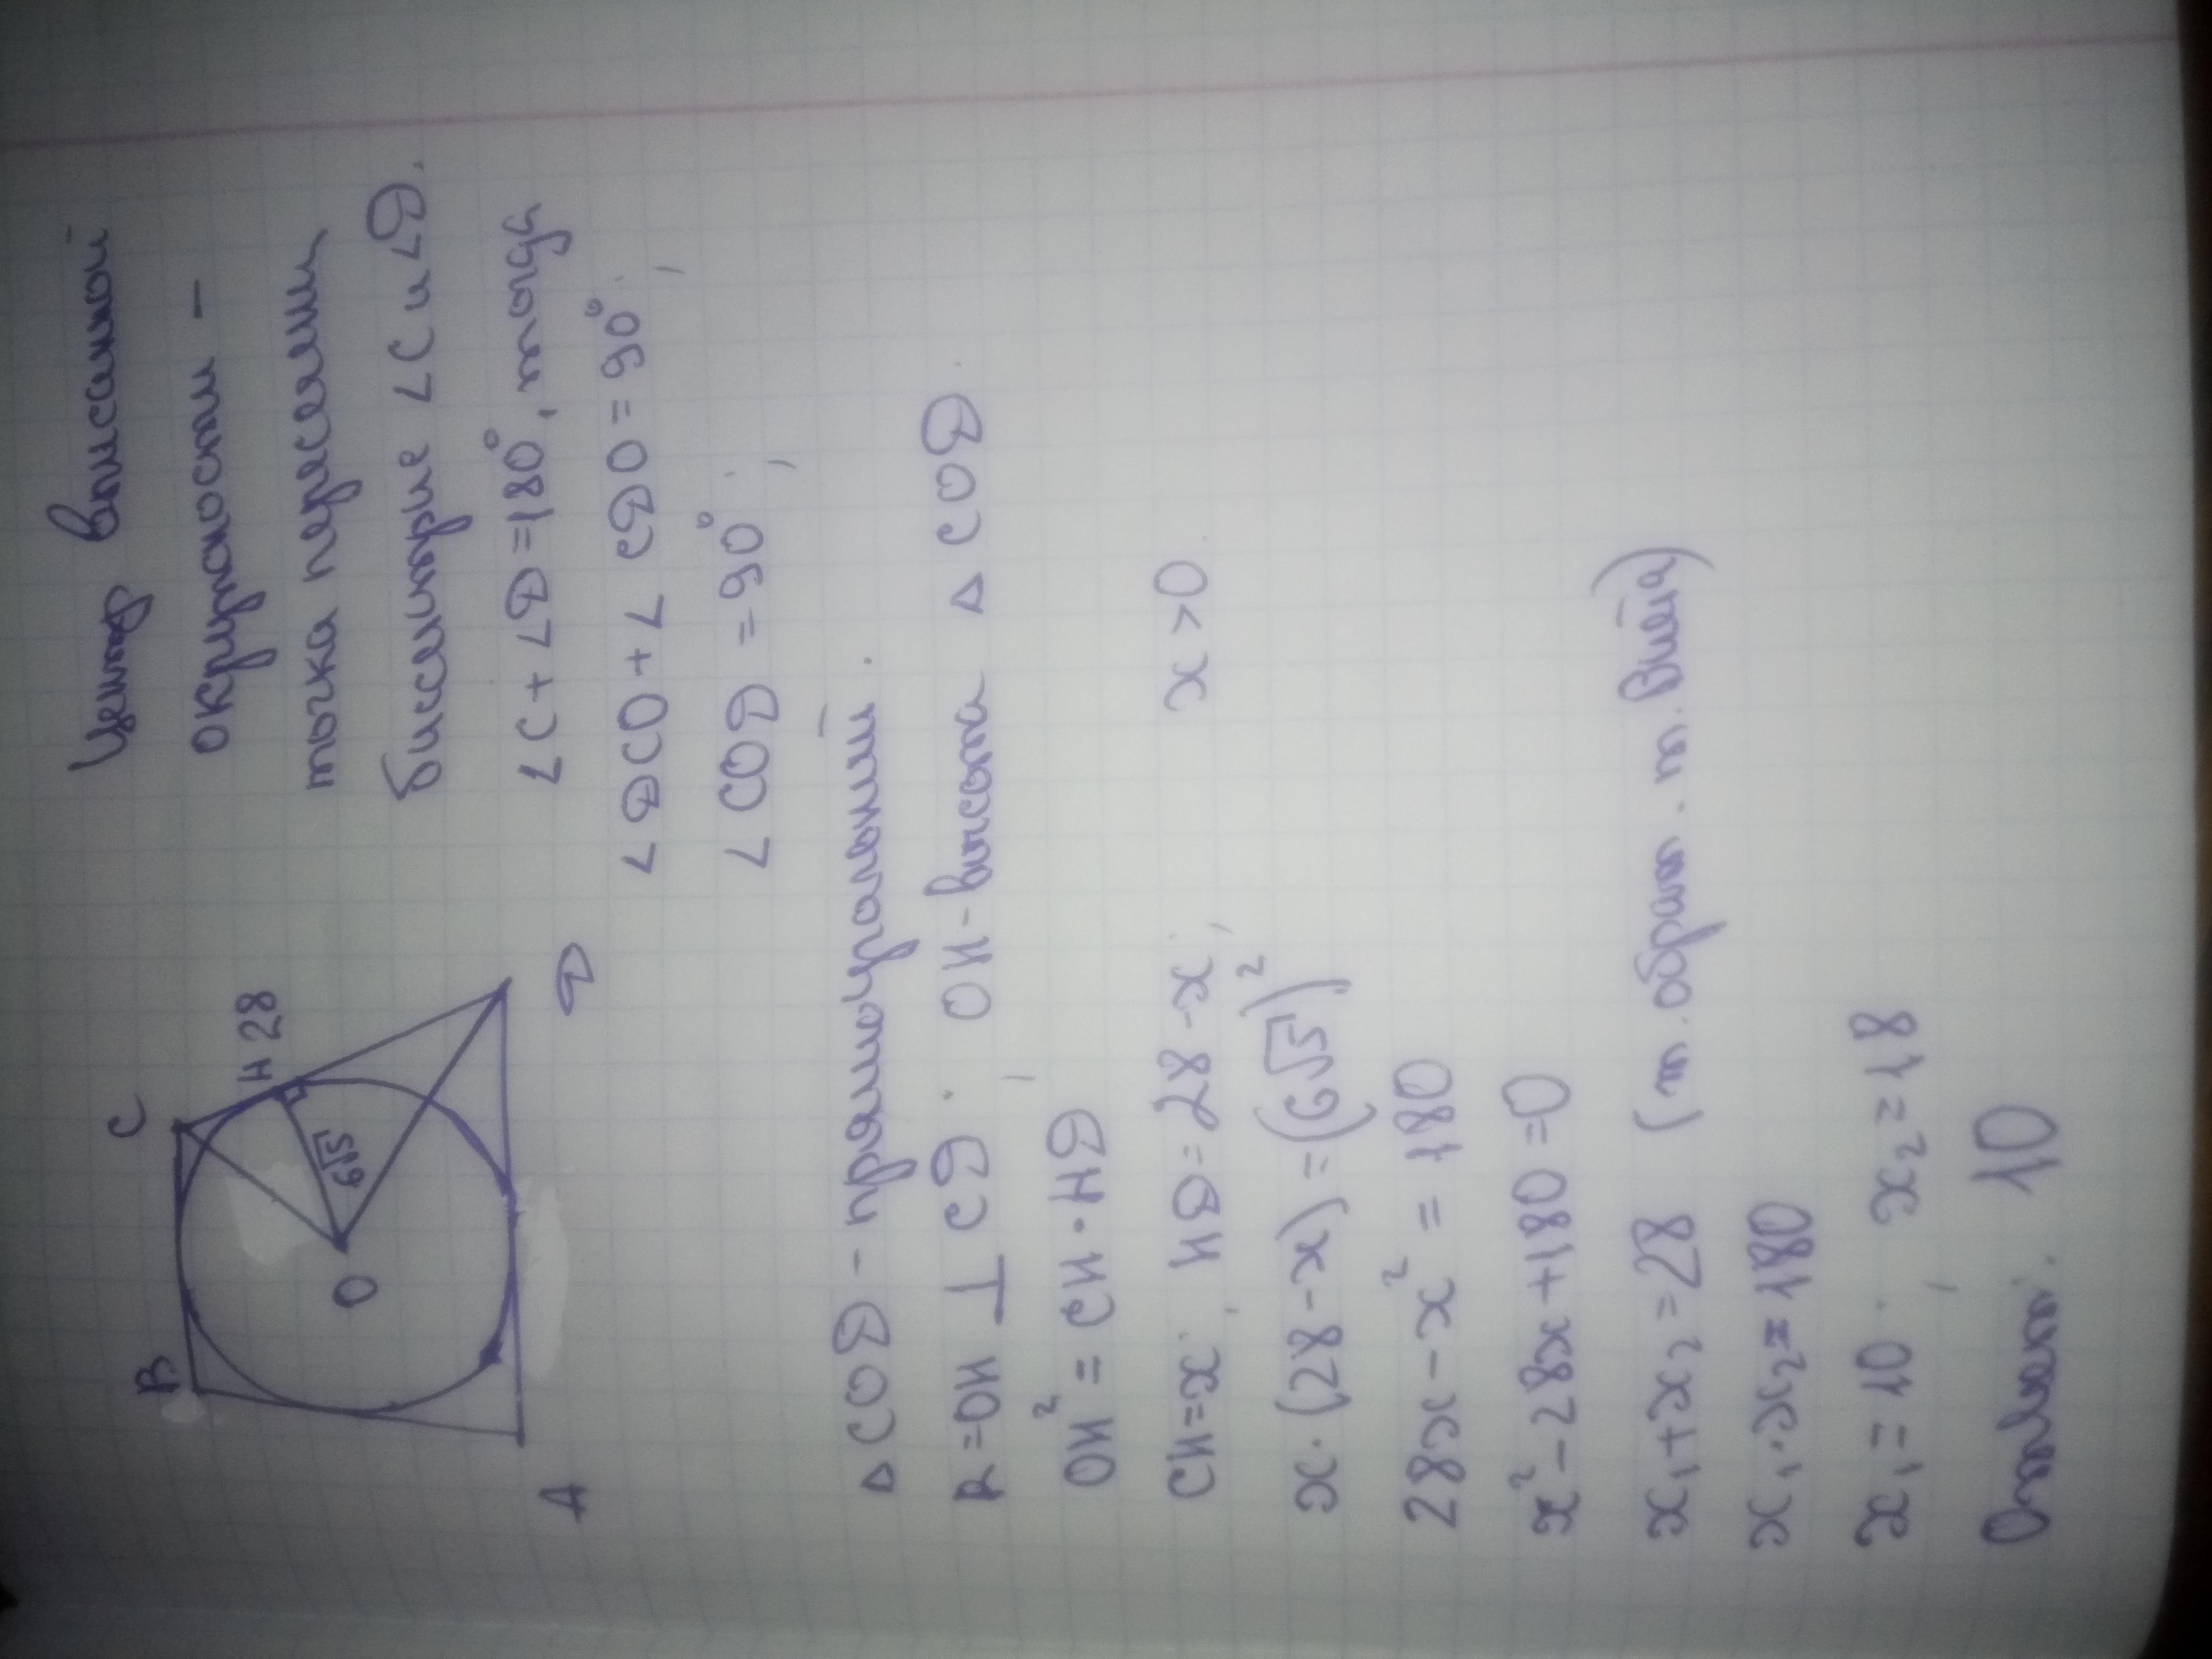 B
C
H 28
6√5
O
A
D
Центр вписанной
окружности -
точка пересечения
биссектрис ∠C и ∠D.
∠C + ∠D = 180°, тогда
∠DCO + ∠CDO = 90°,
∠COD = 90°,
△COD - прямоугольный.
R = OH ⊥ CD. OH - высота △COD.
OH² = CH · HD,
CH = x, HD = 28 - x, x > 0
x · (28 - x) = (6√5)²
28x - x² = 180
x² - 28x + 180 = 0
x₁ + x₂ = 28 (т. обрат. т. Виета)
x₁ · x₂ = 180
x₁ = 10, x₂ = 18
Ответ: 10